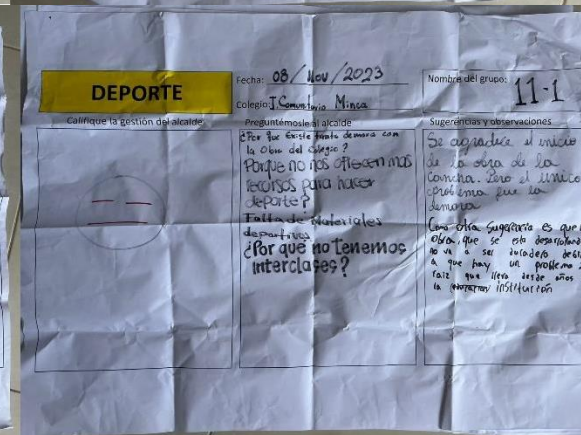 DEPORTE
Fecha: 08/Nov/2023
Colegio: J. Comunitario Minca
Nombre del grupo: 11-1
Califique la gestión del alcalde:
Preguntémosle al alcalde
¿Por que Existe tanta demora con
la Obra del Colegio?
Porque no nos ofrecen mas
recorsos para hacer
deporte?
Falta de Materiales
deportivos
¿Por qué no tenemos
interclases?
Sugerencias y observaciones
Se agradece el inicio
de la obra de la
Cancha. Pero el unico
problema fue la
demora
Como otra Sugerencia es que
obra, que se esta desarrolland
no va a ser duradero debi
a que hay un problema
raiz que lleva desde años
la institución